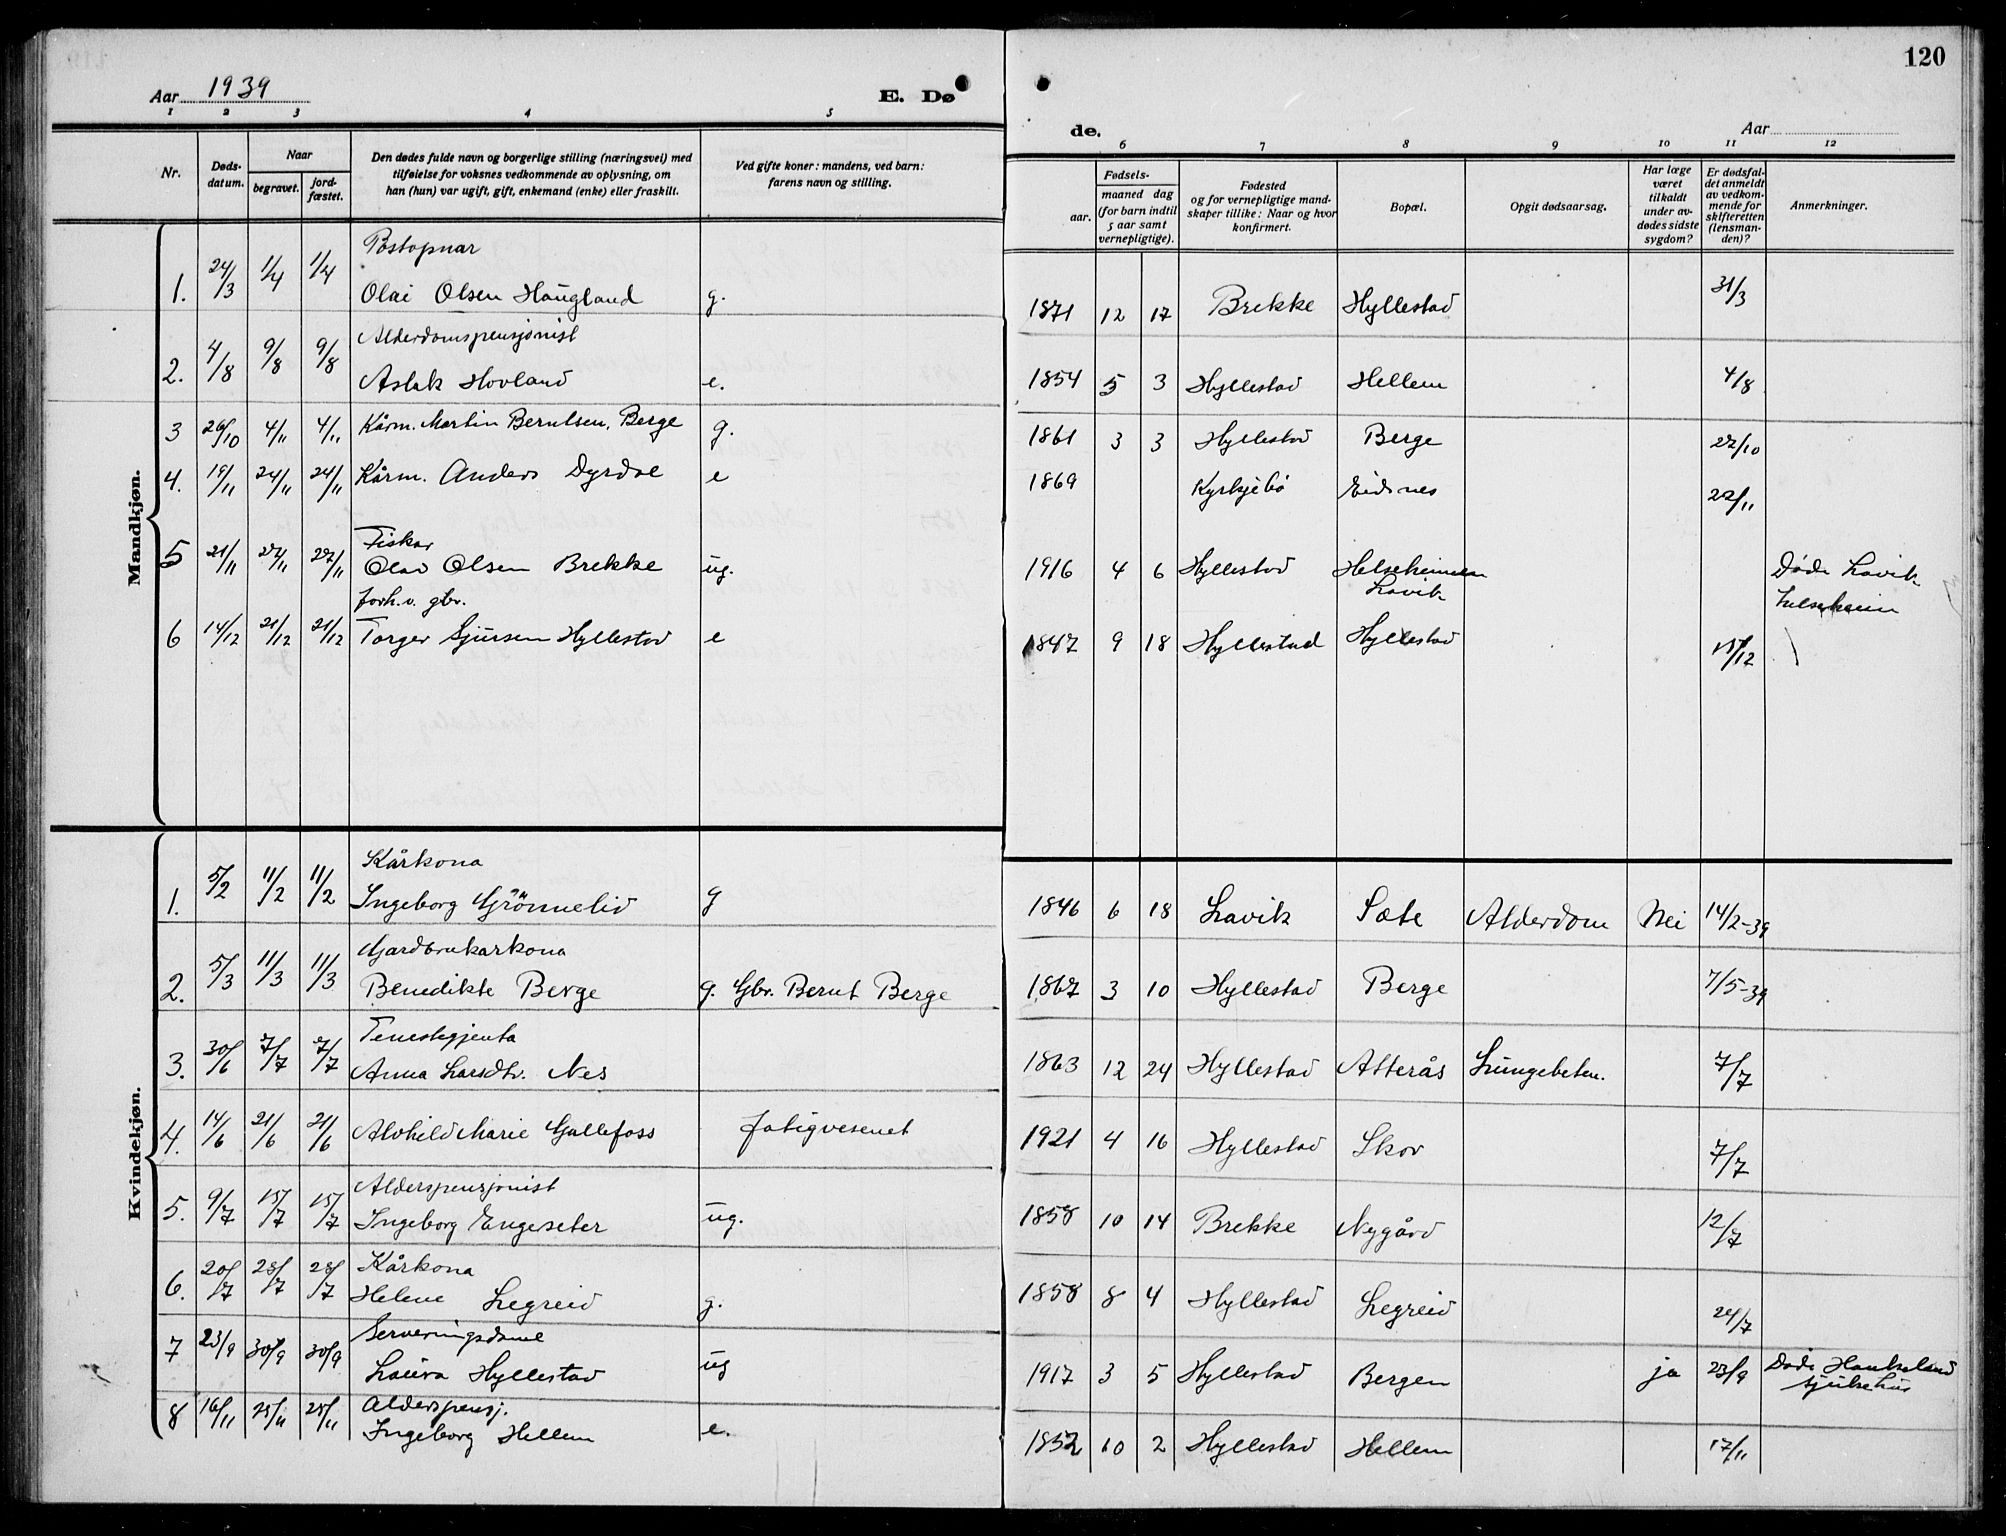 120
Aar 1939
E. Dø
de.
Aar
1 2 3 4 5
6 7 8 9 10 11 12
Nr.
Døds-datum.
Naar
begravet.
jord-fæstet.
Den dødes fulde navn og borgerlige stilling (næringsvei) med
tilføielse for voksnes vedkommende av oplysning, om
han (hun) var ugift, gift, enkemand (enke) eller fraskilt.
Ved gifte koner: mandens, ved barn:
farens navn og stilling.
Fødsels-
aar.
maaned dag
(for barn indtil
5 aar samt
vernepligtige).
Fødested
og for vernepligtige mand-
skaper tillike: Naar og hvor
konfirmert.
Bopæl.
Opgit dødsaarsag.
Har læge
været
tilkaldt
under av-
dødes sidste
sygdom?
Er dødsfal-
det anmeldt
av vedkom-
mende for
skifteretten
(lensman-
den)?
Anmerkninger.
Mandkjøn.
Postopnar
1. 24/3 1/4 1/4 Olai Olsen Haugland g. 1871 12 17 Brekke Hyllestad 31/3
Alderdomspensjonist
2. 4/8 9/8 9/8 Aslak Hovland e. 1854 5 3 Hyllestad Hellem 4/8
3 26/10 4/11 4/11 Kårm. Martin Berntsen Berge g. 1861 3 3 Hyllestad Berge 27/10
4. 19/11 24/11 24/11 Kårm. Anders Dyrdal e 1869 Kyrkjebø Eidsnes 22/11
Fiskar
5 21/11 27/11 27/11 Olav Olsen Brekke ug. 1916 4 6 Hyllestad Helseheimen Lavik Døde Lavik
helseheim
forh.v. gbr.
6 14/12 21/12 21/12 Torger Sjursen Hyllestad e 1847 9 18 Hyllestad Hyllestad 15/12
Kvindekjøn.
Kårkona
1. 5/2 11/2 11/2 Ingeborg Grönnelid g 1846 6 18 Lavik Sæte Alderdom Nei 14/2-39
Gardbrukarkona
2. 5/3 11/3 11/3 Benedikte Berge g. Gbr. Bernt Berge 1867 3 10 Hyllestad Berge 7/5-39
Tenestegjenta
3. 30/6 7/7 7/7 Anna Larsdtr. Nes 1863 12 24 Hyllestad Atterås Lungebeten.
7/7
4. 14/6 21/6 21/6 Alvhild Marie Gallefoss fatigvesenet 1921 4 16 Hyllestad Skor 7/7
Alderspensjonist
5. 9/7 15/7 15/7 Ingeborg Engeseter ug. 1858 10 14 Brekke Nygård 12/7
Kårkona
6. 20/7 28/7 28/7 Helene Legreid g. 1858 8 4 Hyllestad Legreid 24/7
Serveringsdame
7 23/9 30/9 30/9 Laura Hyllestad ug 1917 3 5 Hyllestad Bergen ja 23/9 Døde Haukeland
sjukehus
Alderspensj.
8 16/11 25/11 25/11 Ingeborg Hellem e. 1852 10 2 Hyllestad Hellem 17/11